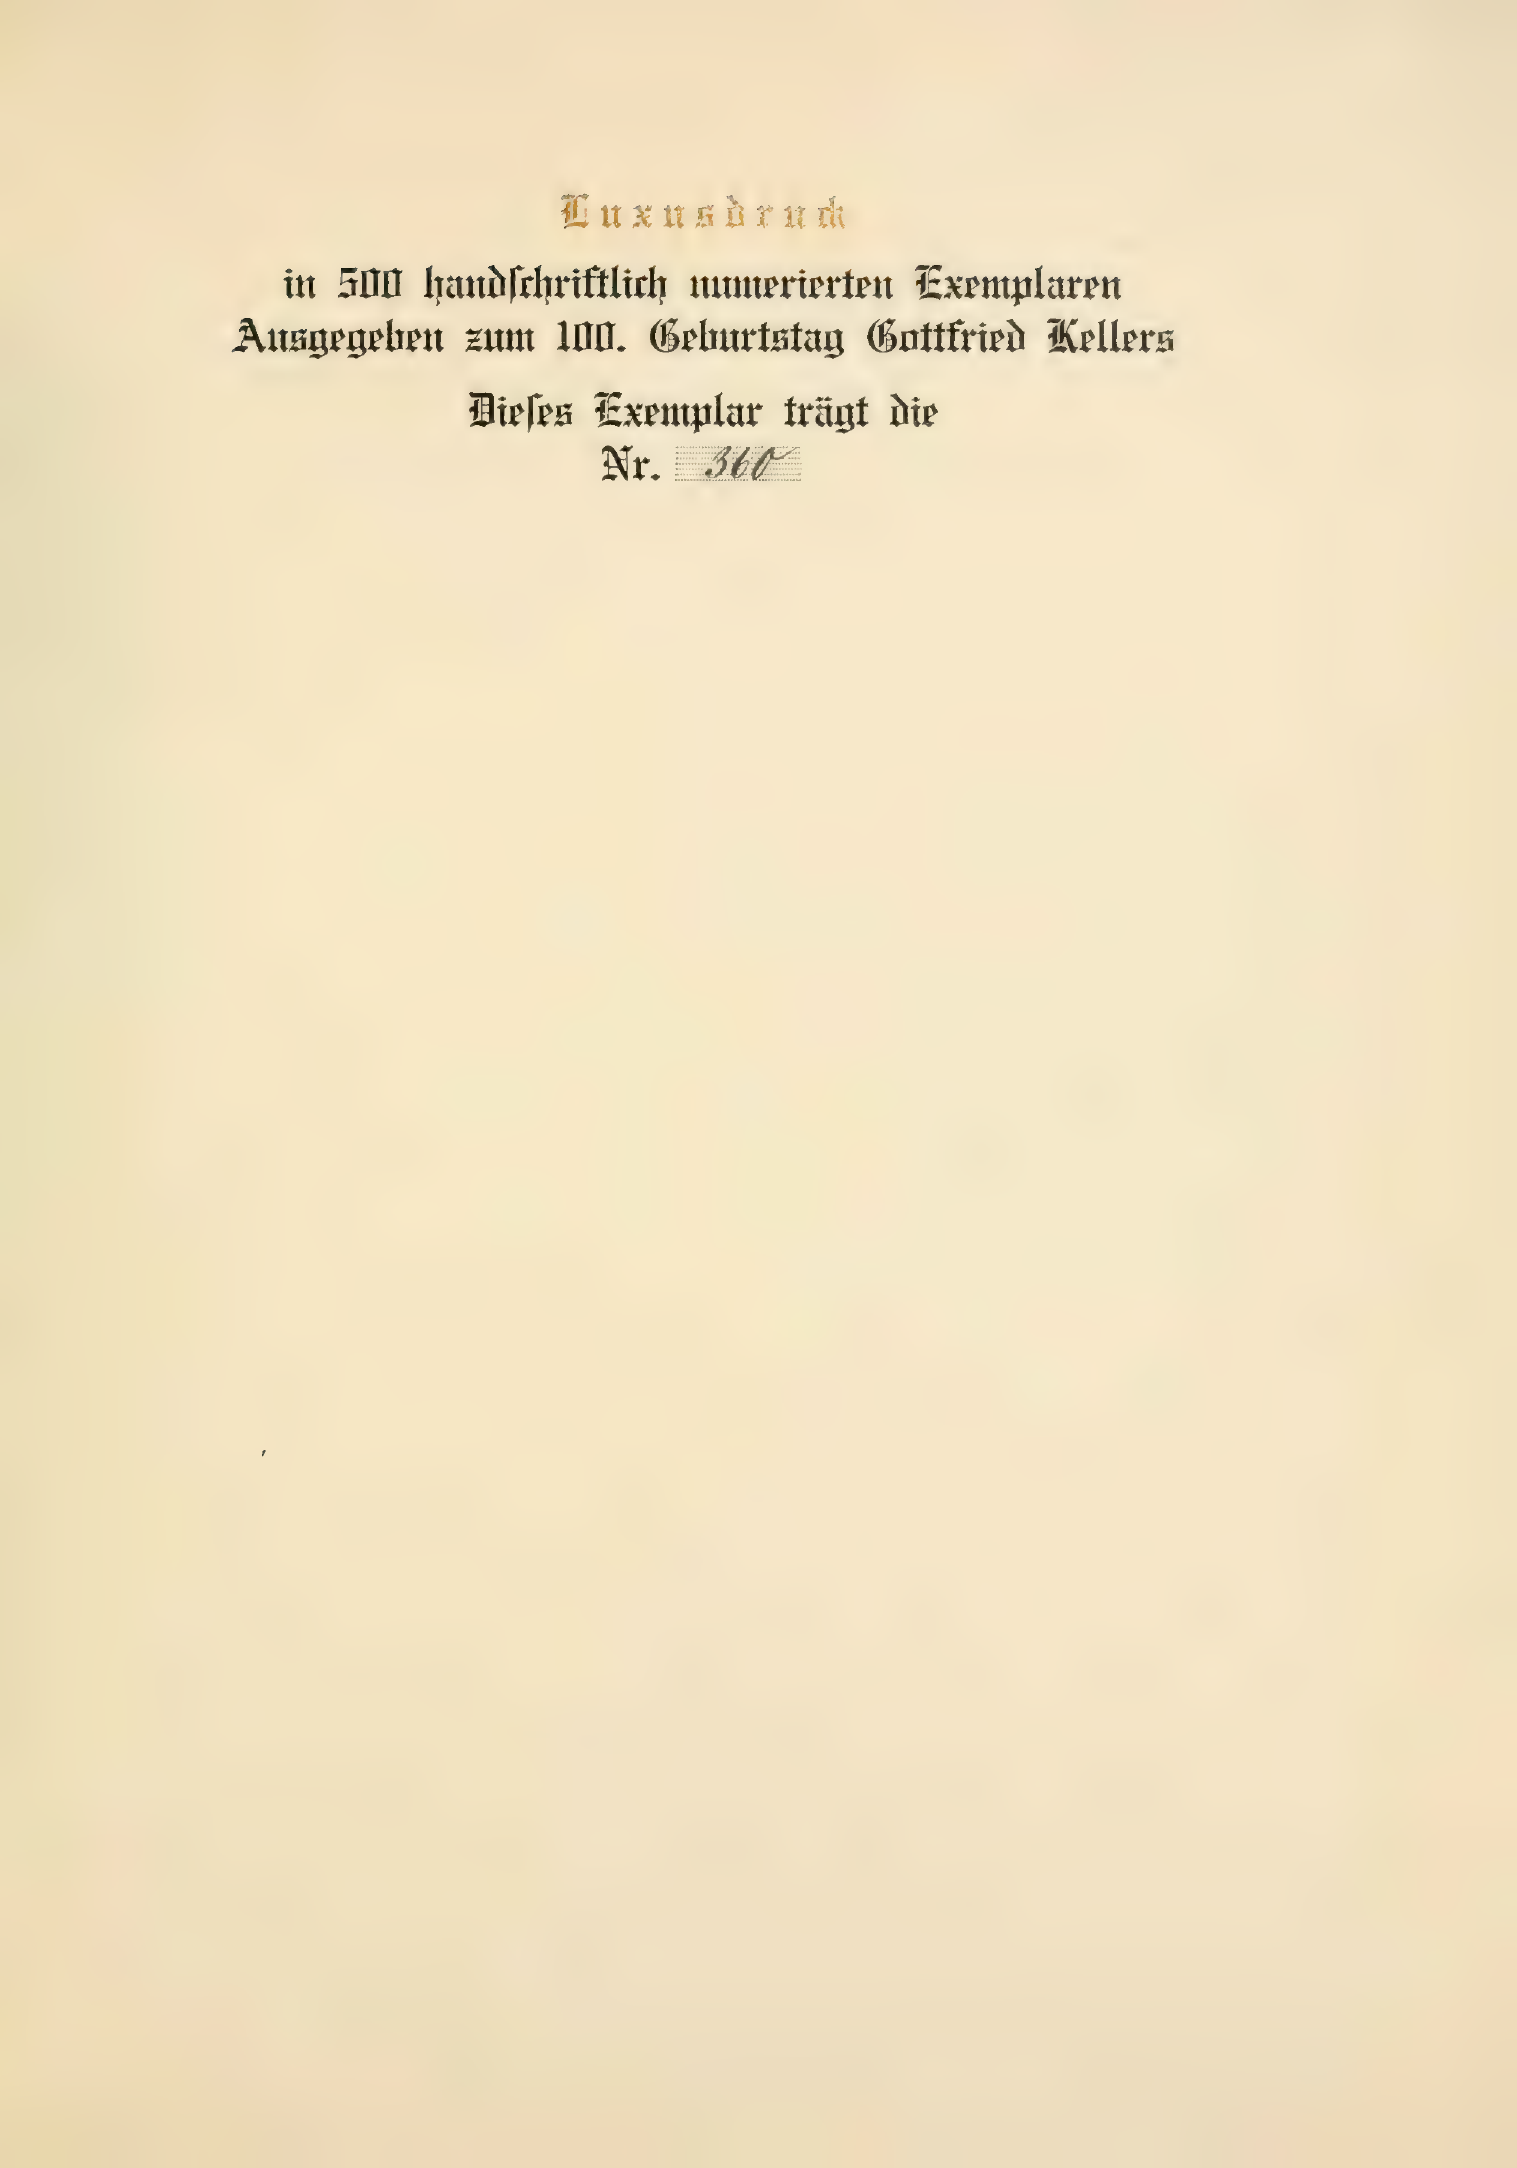 Luxusdruck
in 500 handſchriftlich numerierten Exemplaren
Ausgegeben zum 100. Geburtstag Gottfried Kellers
Dieſes Exemplar trägt die
Nr. 360